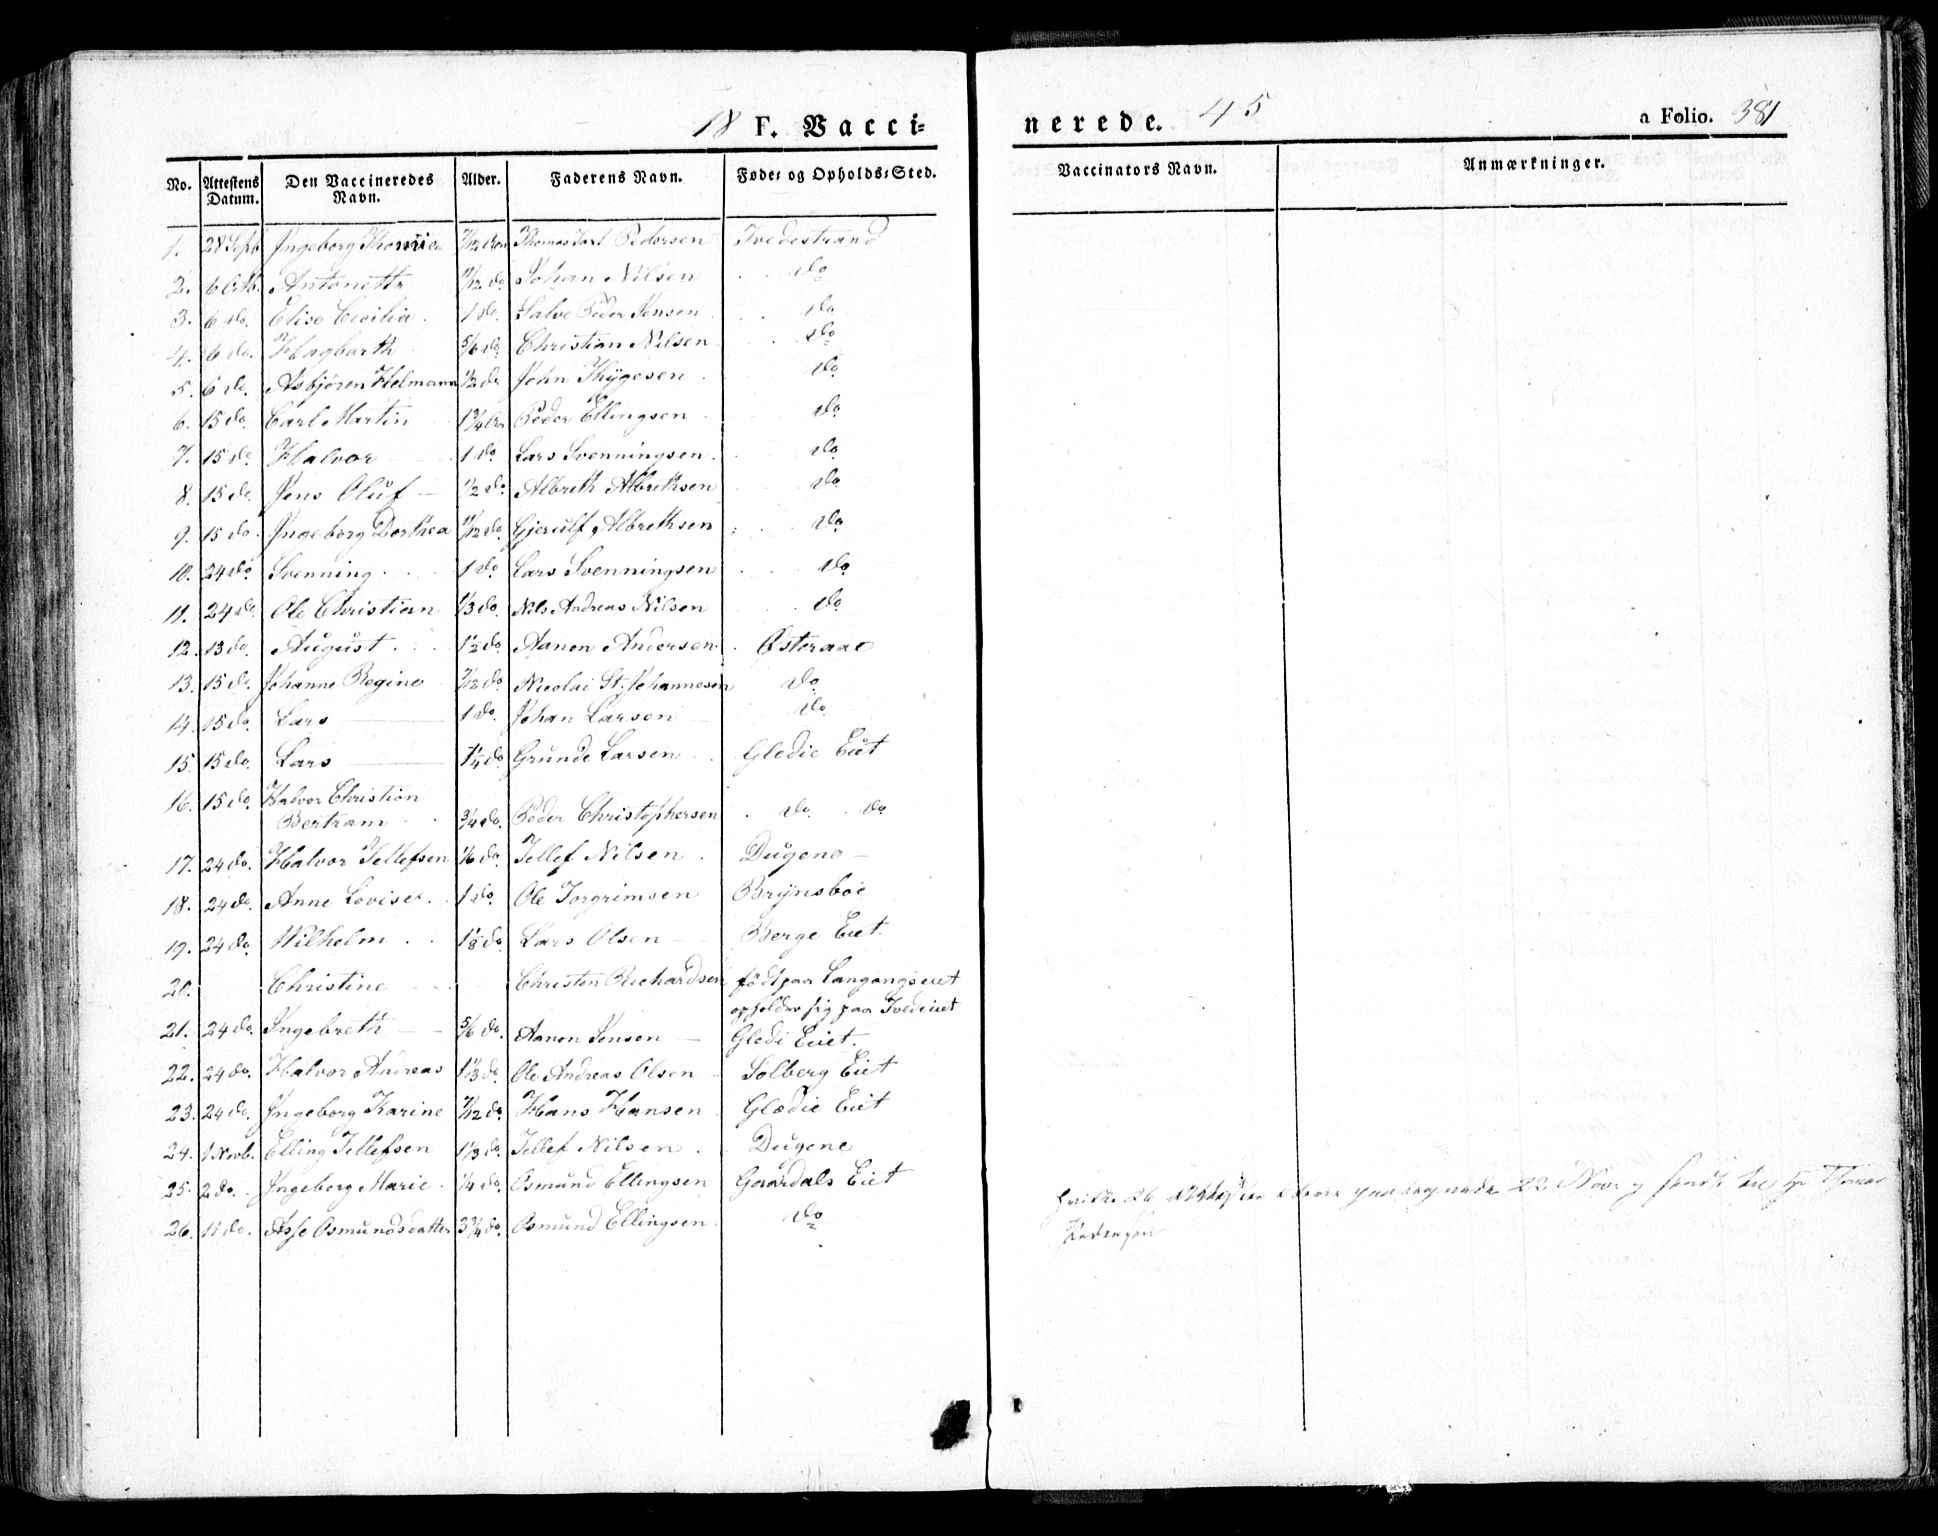 18 F. Vacci-
nerede. 45
a Folio. 381
No. Attestens Datum. Den Vaccineredes Navn. Alder. Faderens Navn. Føde- og Opholds-Sted. Vaccinators Navn. Anmærkninger.
1. 28 Sept Ingeborg 7/12 Thomas Pedersen Tvedestrand
2. 6 Octb. Antonette 11/12 do Johan Nilsen do
3. 6 do. Elise Cecilia 1 do. Salve Peder Jensen do
4. 6 do. Hagbarth 5/6 do. Christian Nilsen do
5. 6 do. Asbjören Helmann 1/2 do John Thÿgesen do
6. 15 do. Carl Martin 1 3/4 Peder Ellingsen do
7. 15 do. Halvor 1 do Lars Svenningsen do
8. 15 do. Jens Oluf 1/2 do Albreth Albrethsen do
9. 15 do. Ingeborg Dorthea 11/12 do. Gjerulf Albrethsen do
10. 24 do Svenning 1 do Lars Svenningsen do
11. 24 do Ole Christian 1/3 do. Nils Andreas Nilsen do
12. 13 do. August 1 1/2 do Aanon Andersen Østeraae
13. 15 do. Johanne Regine 7/12 do Nicolai St. Johannesen do
14. 15 do. Lars 1 do. Johan Larsen do
15. 15 do. Lars 1 1/4 do Grunde Larsen Gledie Eiet
16. 15 do. Halvor Christian
Bertram 3/4 do. Peder Christophersen do. do
17. 24 do. Halvor Tellefsen 1/6 do. Tellef Nilsen Dugene
18. 24 do. Anne Lovise 1 do. Ole Torgrimsen Brÿnsboe
19. 24 do. Wilhelm 1 1/8 do Lars Olsen Berge Eiet.
20. Christine Christen Richardsen födt paa Langangseiet
opholder sig paa Tvedeiet
21. 24 do. Ingebreth 5/6 do. Aanon Jensen Gledi Eiet.
22. 24 do. Halvor Andreas 1 1/3 do. Ole Andreas Olsen Solberg Eiet
23. 24 do. Ingeborg Karine 7/12 do Hans Hansen Glædie Eiet
24. 1 Novb. Elling Tellefsen 1 1/3 do. Tellef Nilsen Dugene
25. 2 do. Ingeborg Marie 1/4 do. Osmund Ellingsen Gaardals Eiet
26. 11 do. Asse Osmundsdatter 3 3/4 do. Osmund Ellingsen do
hvilke 26 Attester 22 Novr sendt Hr